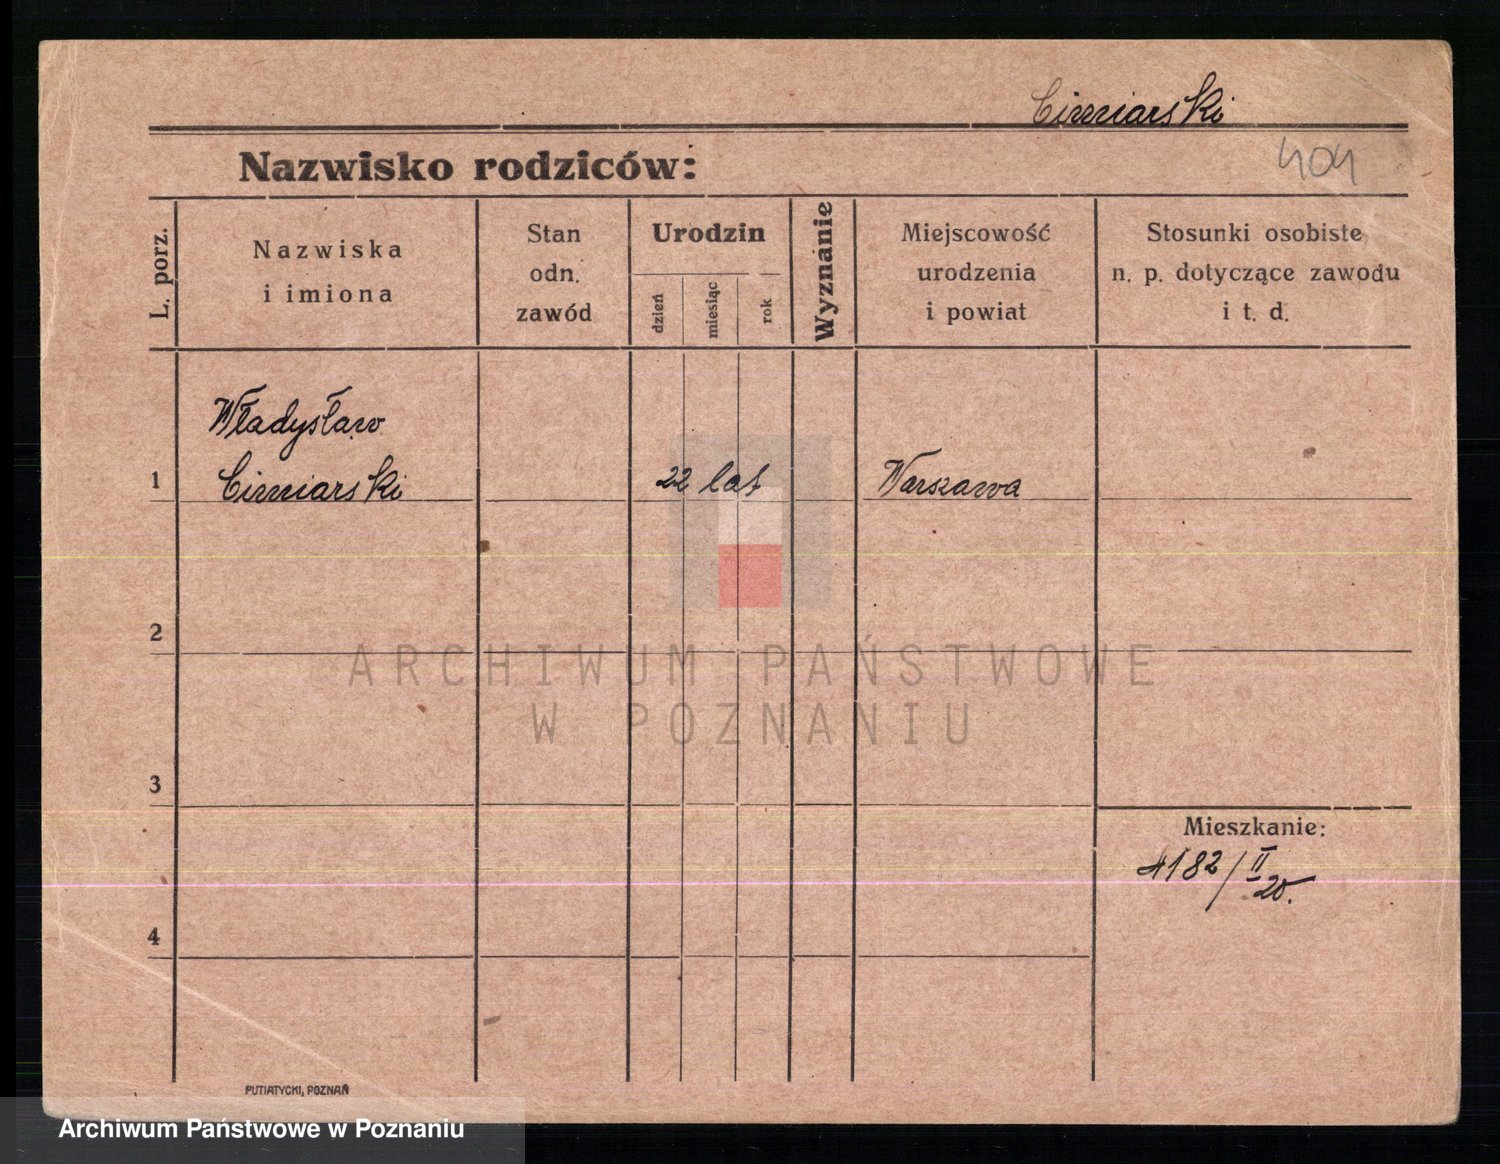 Cimniarski
Nazwisko rodziców:
404
L. porz.
Nazwiska
i imiona
Stan
odn.
zawód
Urodzin
dzień
miesiąc
rok
Wyznanie
Miejscowość
urodzenia
i powiat
Stosunki osobiste
n. p. dotyczące zawodu
i t. d.
Władysław
1 Cimniarski 22 lat Warszawa
2
ARCHIWUM PAŃSTWOWE
W POZNANIU
3
Mieszkanie:
4182/II
20.
4
PUTIATYCKI, POZNAŃ
Archiwum Państwowe w Poznaniu